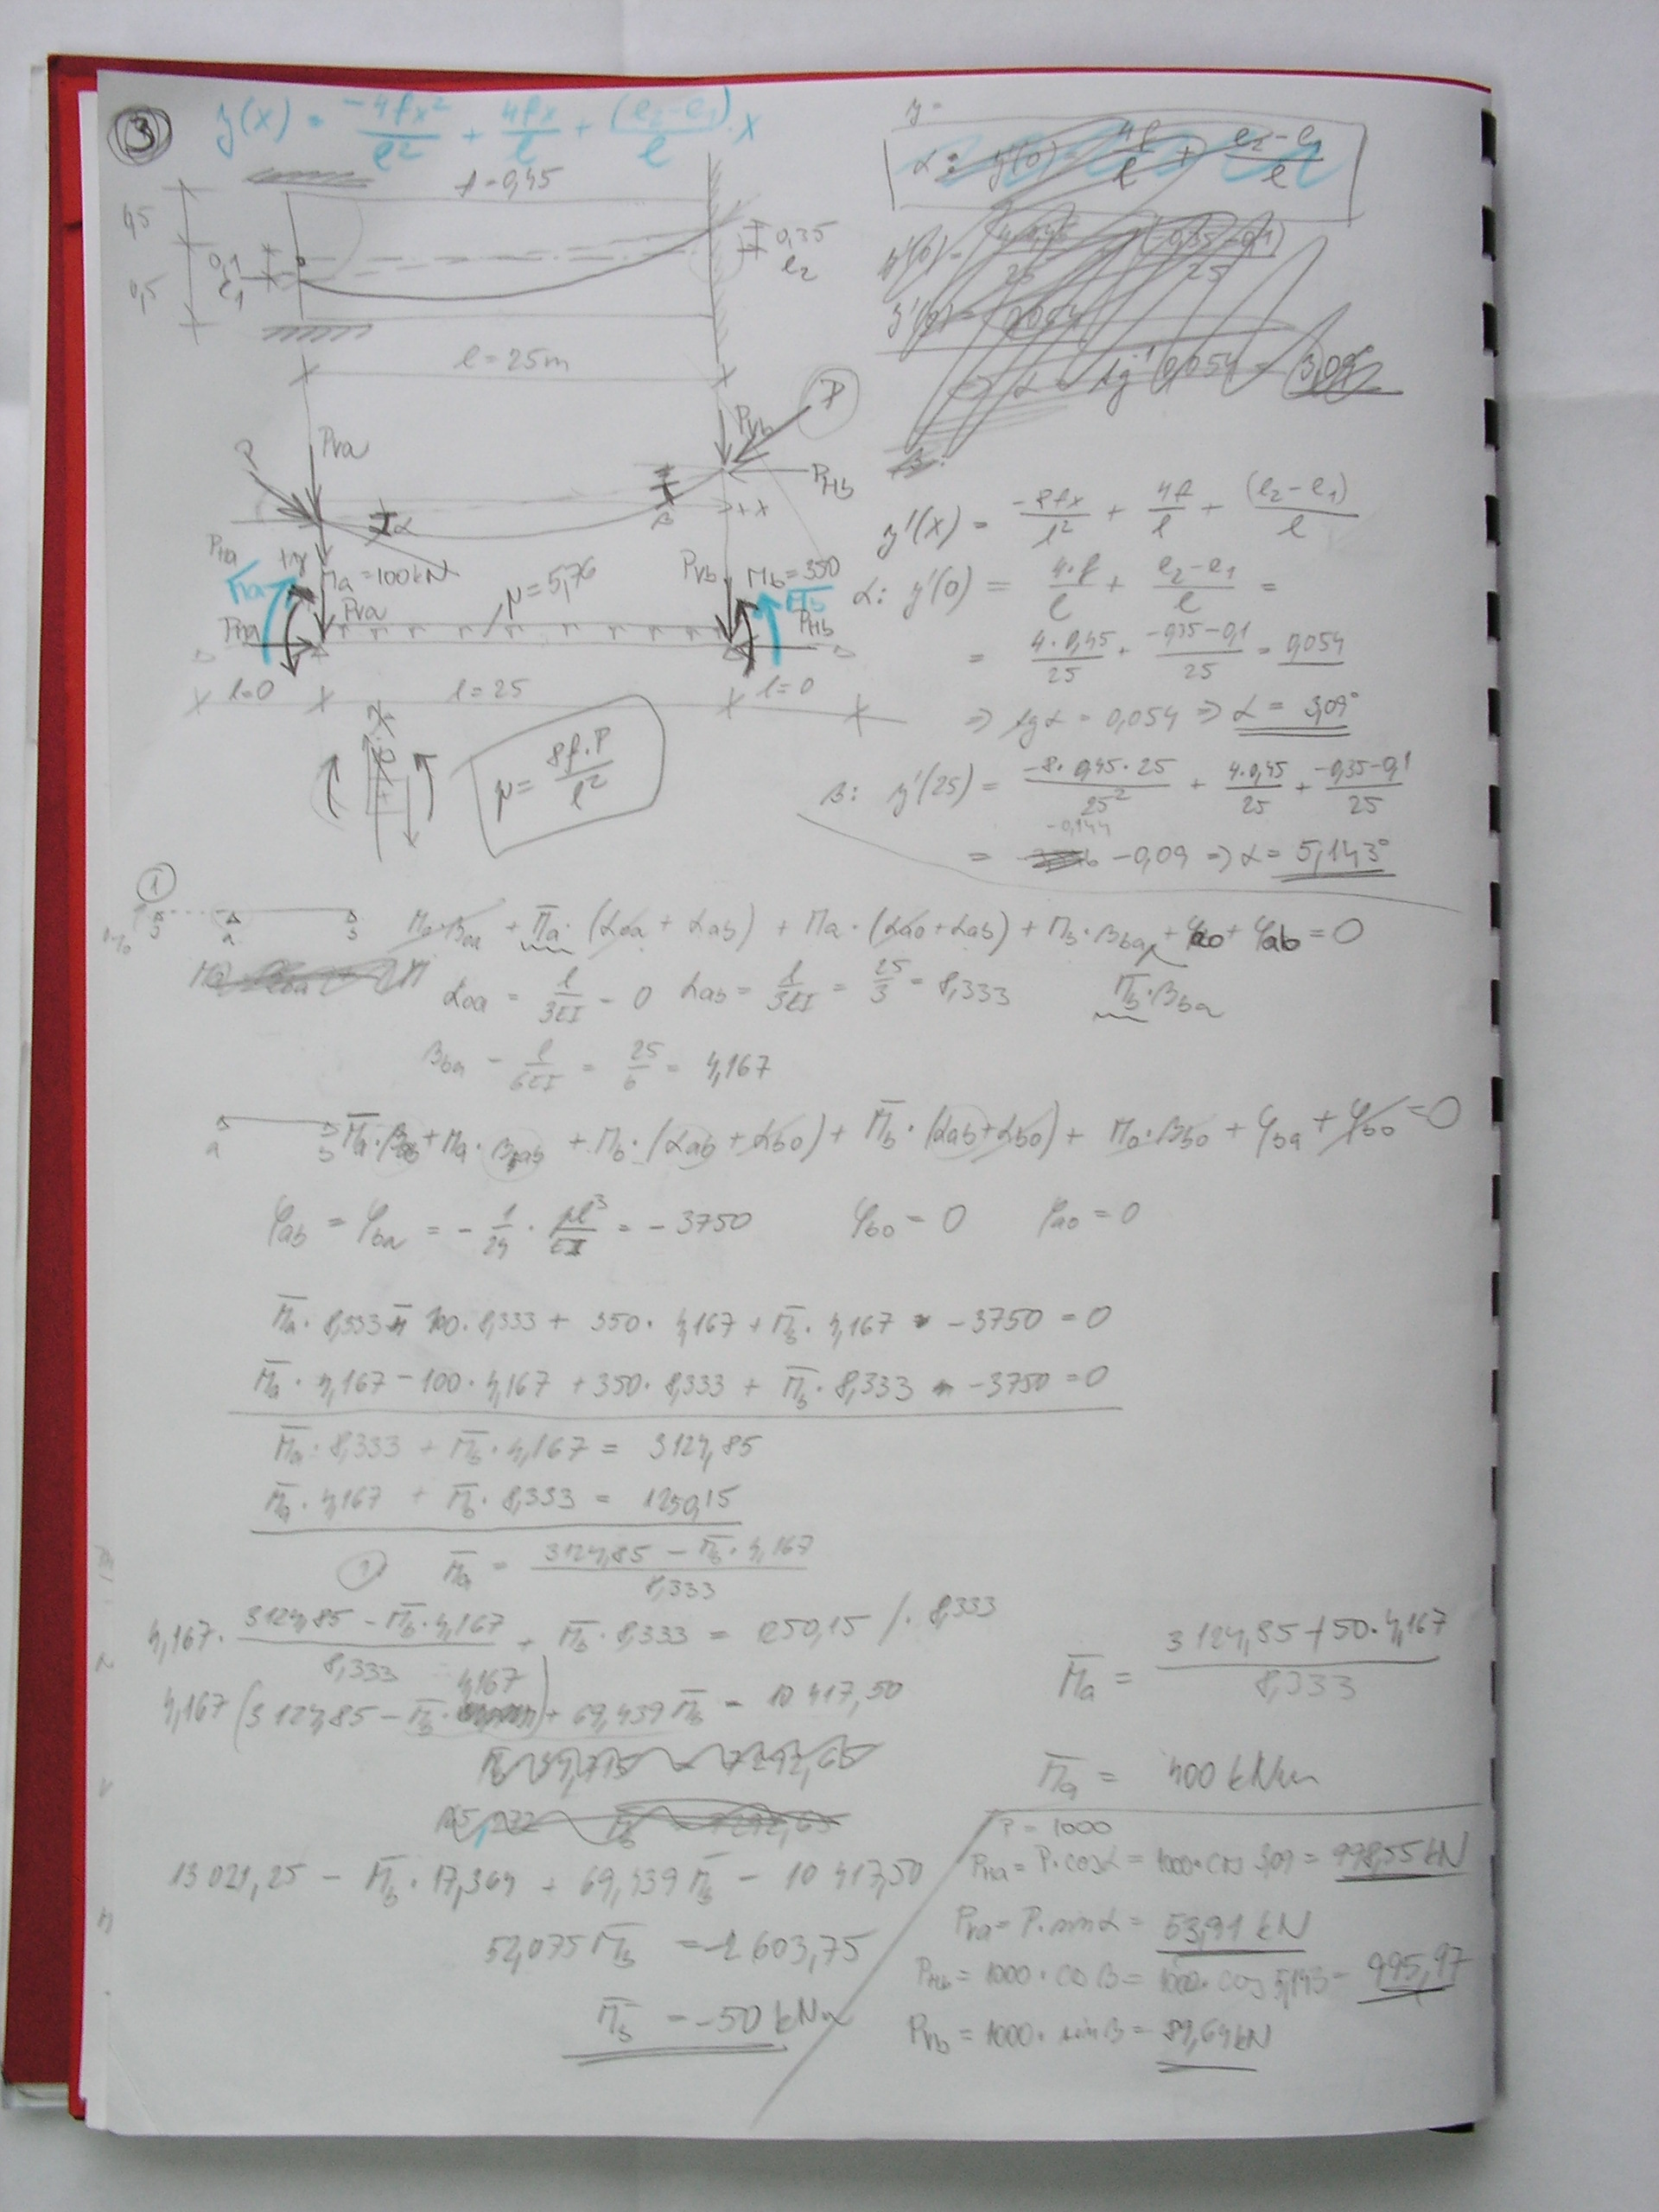 3
y(x) = -4fx²/l² + 4fx/l + (e₂-e₁)/l · x
f = 0,45
0,5
0,1
e₁
0,5
0,35
e₂
l = 25m
P
Pva
Pvb
P
PHb
α
β
+x
PHa
+y
Ma = 100kN
Pvb
Mb = 350
M̄a
Pva
μ = 5,76
M̄b
PHa
PHb
l=0
l = 25
l=0
μ = 8f·P/l²
y'(x) = -8fx/l² + 4f/l + (e₂-e₁)/l
α: y'(0) = 4·f/l + e₂-e₁/l =
= 4·0,45/25 + -0,35-0,1/25 = 0,054
⇒ tgα = 0,054 ⇒ α = 3,09°
β: y'(25) = -8·0,45·25/25² + 4·0,45/25 + -0,35-0,1/25
-0,144
= -0,09 ⇒ α = 5,143°
1
M₀·β₀a + M̄a·(α₀a + αab) + Ma·(αa₀+αab) + Mb·βba + φa₀ + φab = 0
α₀a = l/3EI = 0 αab = l/3EI = 25/3 = 8,333 M̄b·βba
βba = l/6EI = 25/6 = 4,167
a b M̄a·βab + Ma·βab + Mb·(αab + αb0) + M̄b·(αab+αb0) + M₀·βb0 + φba + φb0 = 0
φab = φba = -1/24 · μl³/EI = -3750 φb0 = 0 φa0 = 0
M̄a·8,333 - 100·8,333 + 350·4,167 + M̄b·4,167 -3750 = 0
M̄a·4,167 - 100·4,167 + 350·8,333 + M̄b·8,333 -3750 = 0
M̄a·8,333 + M̄b·4,167 = 3124,85
M̄a·4,167 + M̄b·8,333 = 1250,15
1 M̄a = 3124,85 - M̄b·4,167/8,333
4,167 · 3124,85 - M̄b·4,167/8,333 + M̄b·8,333 = 1250,15 /·8,333
4,167 (3124,85 - M̄b·4,167) + 69,439 M̄b = 10 417,50
13 021,25 - M̄b·17,364 + 69,439 M̄b = 10 417,50
52,075 M̄b = -2 603,75
M̄b = -50 kNm
M̄a = 3124,85+50·4,167/8,333
M̄a = 400 kNm
P = 1000
PHa = P·cosα = 1000·cos 3,09 = 998,55 kN
Pva = P·sinα = 53,91 kN
PHb = 1000·cosβ = 1000·cos 5,143 = 995,97
PVb = 1000·sinβ = 89,64 kN